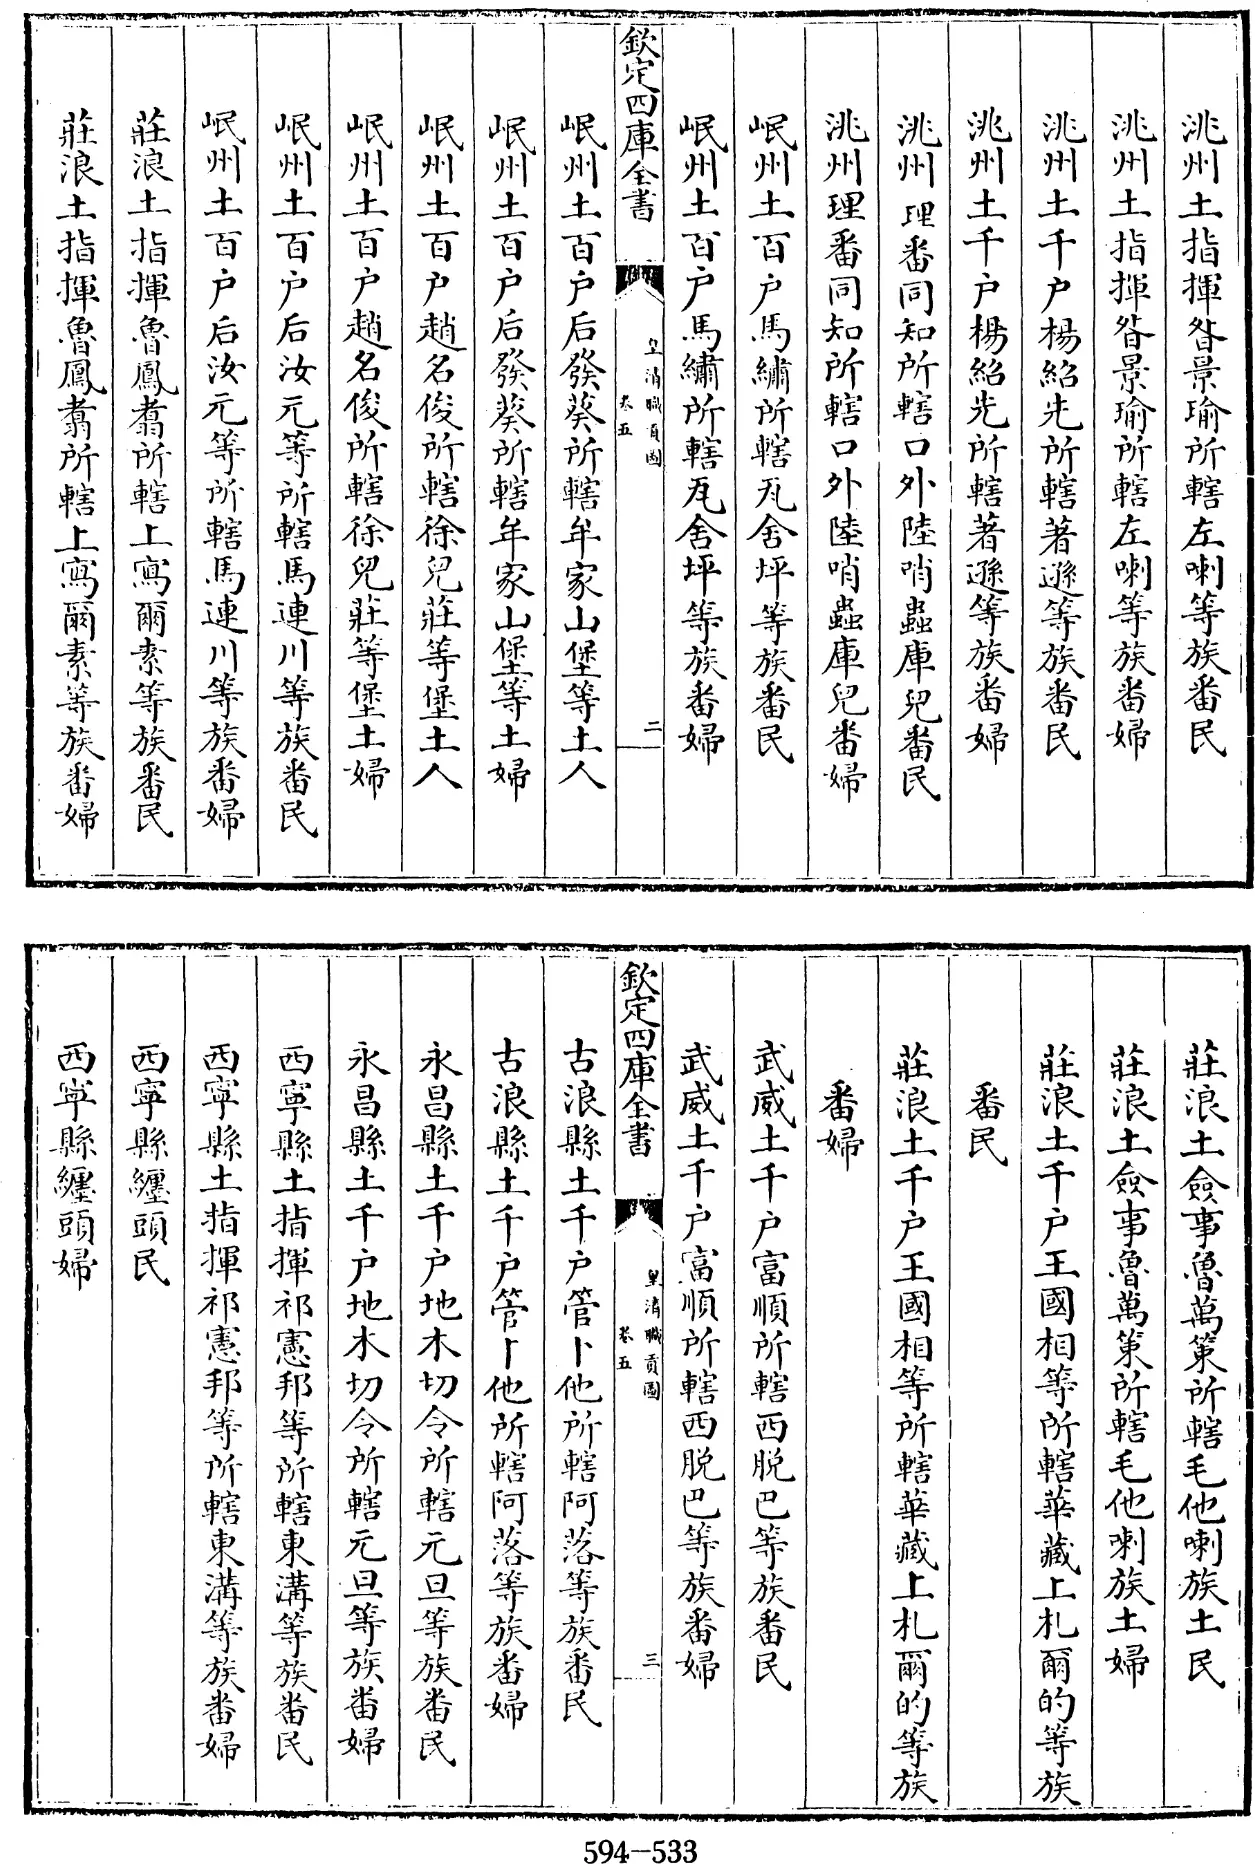 洮州土指揮昝景瑜所轄左喇等族番民
洮州土指揮昝景瑜所轄左喇等族番婦
洮州土千户楊紹先所轄著遜等族番民
洮州土千户楊紹先所轄著遜等族番婦
洮州理番同知所轄口外陸哨蟲庫兒番民
洮州理番同知所轄口外陸哨蟲庫兒番婦
岷州土百户馬繡所轄瓦舍坪等族番民
岷州土百户馬繡所轄瓦舍坪等族番婦
欽定四庫全書
皇清職貢圖
卷五
二
岷州土百户后發葵所轄牟家山堡等土人
岷州土百户后發葵所轄牟家山堡等土婦
岷州土百户趙名俊所轄徐兒莊等堡土人
岷州土百户趙名俊所轄徐兒莊等堡土婦
岷州土百户后汝元等所轄馬連川等族番民
岷州土百户后汝元等所轄馬連川等族番婦
莊浪土指揮魯鳳翥所轄上寫爾素等族番民
莊浪土指揮魯鳳翥所轄上寫爾素等族番婦
莊浪土僉事魯萬策所轄毛他喇族土民
莊浪土僉事魯萬策所轄毛他喇族土婦
莊浪土千户王國相等所轄華藏上札爾的等族
番民
莊浪土千户王國相等所轄華藏上札爾的等族
番婦
武威土千户富順所轄西脱巴等族番民
武威土千户富順所轄西脱巴等族番婦
欽定四庫全書
皇清職貢圖
卷五
三
古浪縣土千户管卜他所轄阿落等族番民
古浪縣土千户管卜他所轄阿落等族番婦
永昌縣土千户地木切令所轄元旦等族番民
永昌縣土千户地木切令所轄元旦等族番婦
西寧縣土指揮祁憲邦等所轄東溝等族番民
西寧縣土指揮祁憲邦等所轄東溝等族番婦
西寧縣纏頭民
西寧縣纏頭婦
594—533